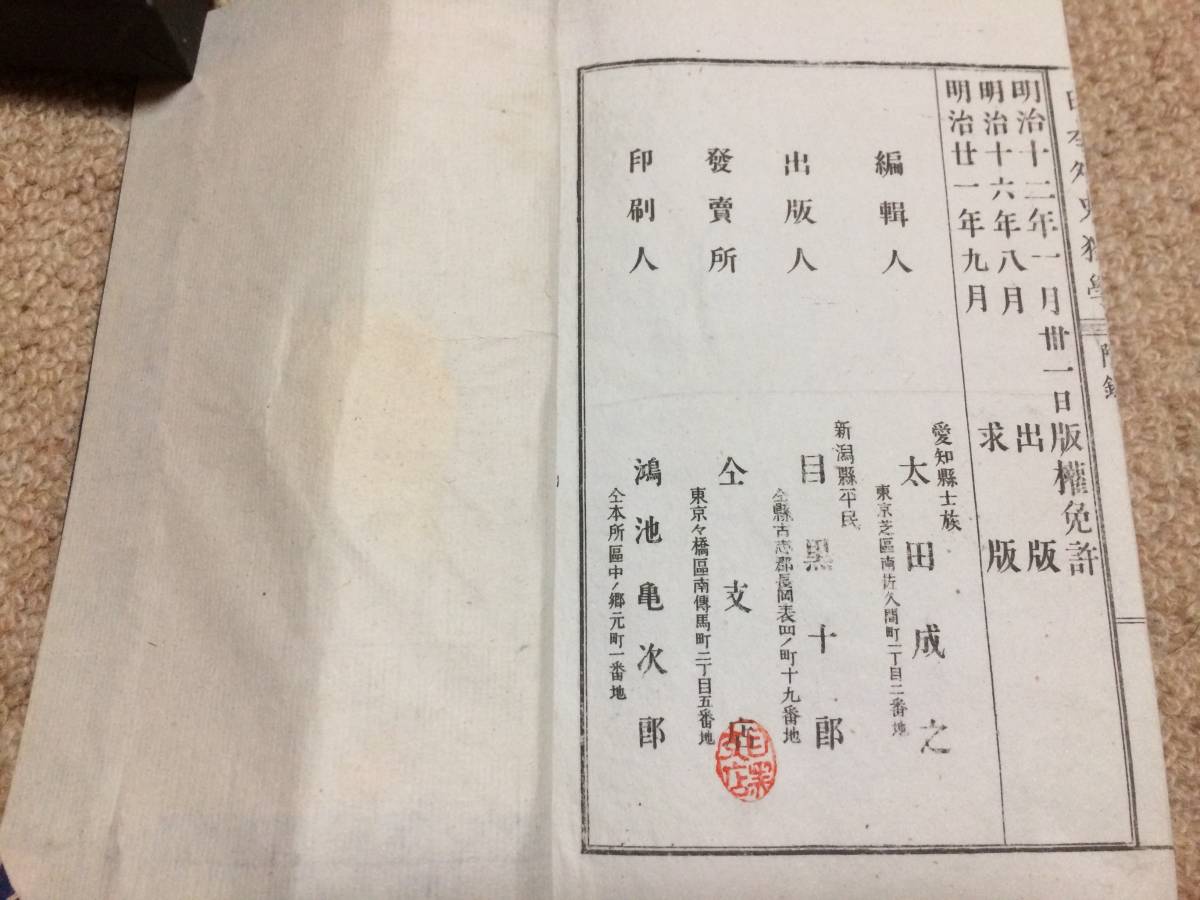 日本外史独學
附錄
明治十二年一月卅一日版權免許
明治十六年八月 出版
明治廿一年九月 求版
編輯人
愛知縣士族
太田成之
東京芝區南佐久間町二丁目二番地
出版人
新潟縣平民
目黒十郎
仝縣古志郡長岡表四ノ町十九番地
發賣所
仝支店
東京々橋區南傳馬町二丁目五番地
印刷人
鴻池亀次郎
仝本所區中ノ郷元町一番地
目黒支店